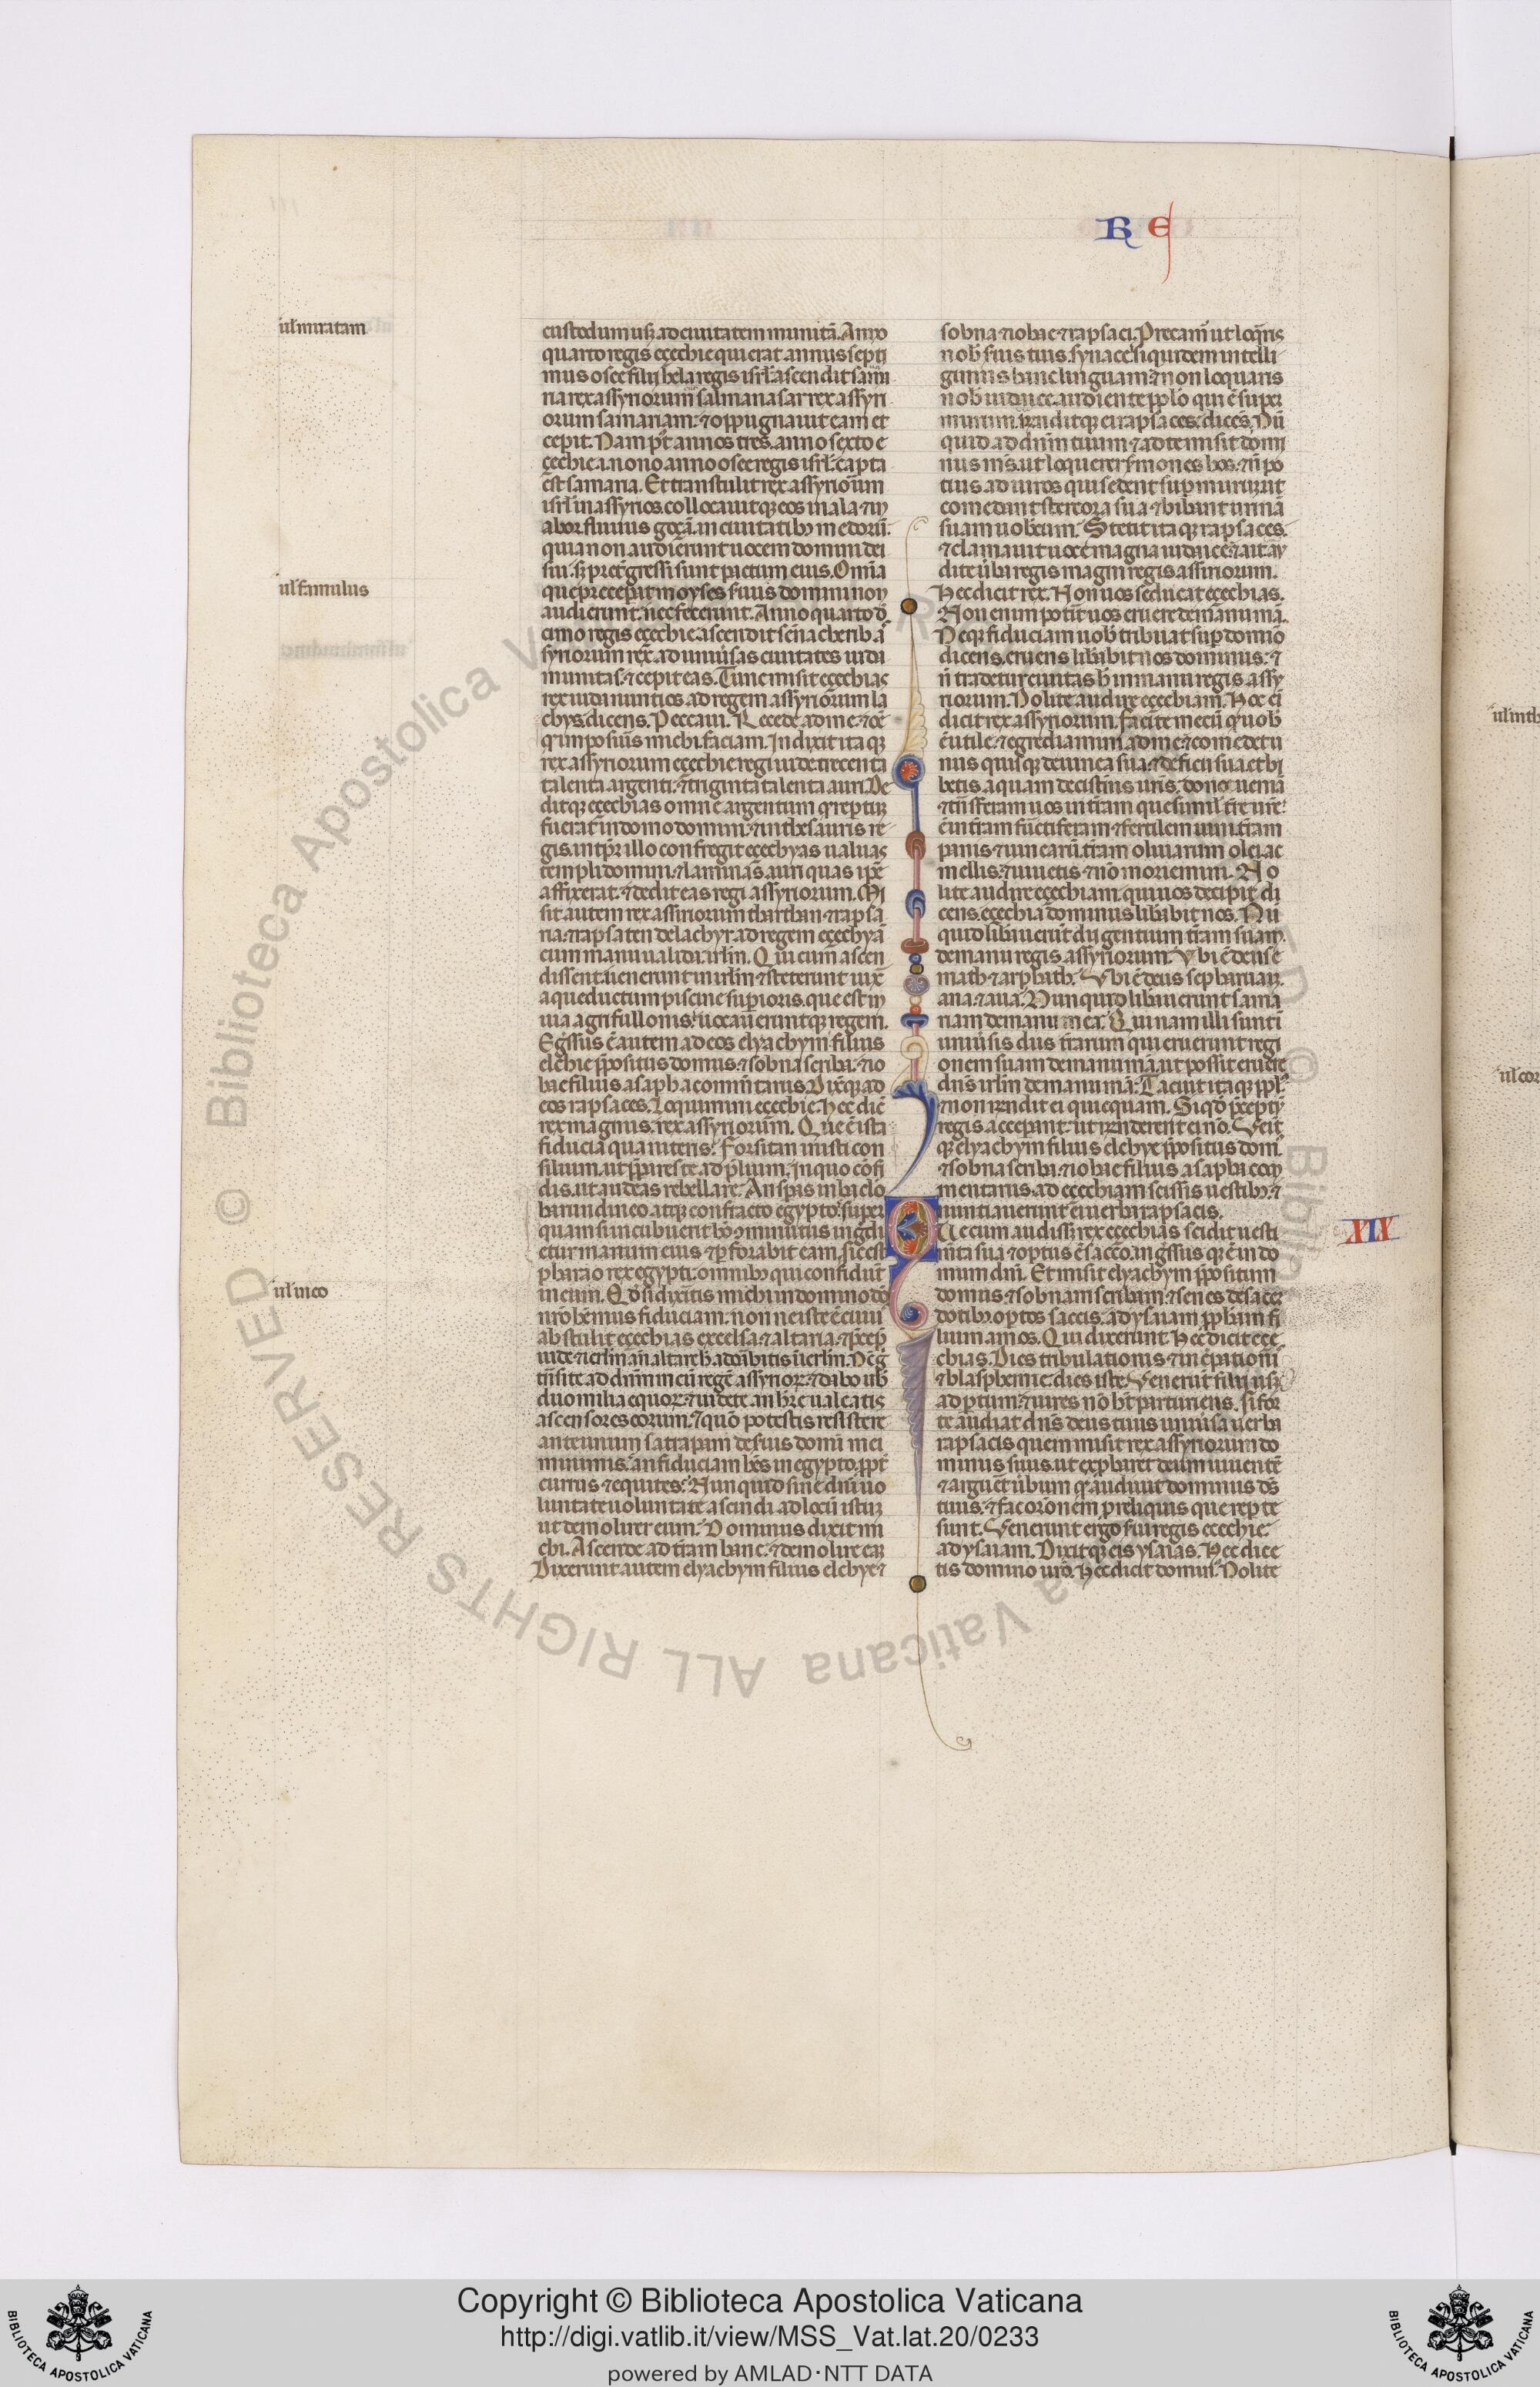 R E
ul' muratam
custodum usq; ad ciuitatem munitā. Anno
quarto regis eçechie qui erat annus septi
mus osee filij hela regis isrl' ascendit sama
na rex assyriorum salmanasar rex assyri
orum samariam: ⁊ oppugnauit eam et
cepit. Nam pꝰt annos tres. anno sexto e
çechie. i. nono anno osee regis isrl'. capta
est samaria. Et transtulit rex assyriorum
isrl' in assyrios. collocauitq; eos in ala ⁊ in
abor fluuiis goçā. in ciuitatib; medorū.
quia non audierunt uocem domini dei
sui. s; pretergressi sunt pactum eius. Omia
que preceperat moyses seruus domini non
audierunt. nec fecerunt. Anno quarto de
cimo regis eçechie ascendit senacherib as
syriorum rex. ad uniuersas ciuitates iuda
munitas: ⁊ cepit eas. Tunc misit eçechias
rex iuda nuntios ad regem assyriorum la
chys. dicens. Peccaui. Recede a me: ⁊ oē
q' imposuis michi. faciam. Indixit itaq;
rex assyriorum eçechie regi iude trecenta
talenta argenti: ⁊ triginta talenta auri. De
ditq; eçechias omne argentum q' reptū
fuerat in domo domini: ⁊ in thesauris re
gis. in tp̄r illo confregit eçechyas ualuas
templi domini: ⁊ laminas auri quas ip̄e
affixerat: ⁊ dedit eas regi assyriorum. Mi
sit autem rex assiriorum thartan ⁊ rapsa
ris: ⁊ rapsaten de lachys: ad regem eçechyā
cum manu ualida irlm. Qui cum ascen
dissent. uenerunt in irlm ⁊ steterunt iux
aqueductum piscine superioris. que est in
uia agri fullonis: uocaueruntq; regem.
Egressus ē autem ad eos elyachym filius
elchie p̄positus domus: ⁊ sobna scriba: ⁊ io
hae filius asaph a commentariis. Dixitq; ad
eos rapsaces. Loquimini eçechie. Hec dic
rex magnus. rex assyriorum. Que ē ista
fiducia qua niteris? Forsitan inisti con
silium. ut p̄pares te ad p̄lium. In quo cōfi
dis. ut audeas rebellare? An speras in baclo
harundineo atq; confracto egypto: super
quam si incubuerit hō ꝯminutus ingredi
etur manum eius ⁊ p̱forabit eam. sic est
pharao rex egypti: omnib; qui confidūt
in eum. Qd si dixeritis michi in domino deo
nr̄o habemus fiduciam. non ne iste ē cuius
abstulit eçechias excelsa ⁊ altaria: ⁊ p̄cep
iude ⁊ irlm an̄ altare h' adorabitis in ierlm. Nc g'
transite ad dn̄m meū regē assyrioꝝ: ⁊ dabo uob
duo milia equoꝝ: ⁊ uidete an habere ualeatis
ascensores eorum. ⁊ quō potestis resistere
ante unum satrapam de seruis domini mei
minimis: an fiduciam habes in egypto. ꝓpt
currus ⁊ equites? Nunquid sine dn̄i uo
luntate uoluntate ascendi ad locū istū:
ut demolirer eum? Dominus dixit mi
chi. Ascende ad terram hanc: ⁊ demolire eā:
Dixerunt autem elyachym filius elchye: ⁊
ul' famulus
ul' in eo
sobna ⁊ iohae ⁊ rapsaci. Precam ut loq̄ris
nob' seruis tuis. synace siquidem intelli
gimus hanc linguam: ⁊ non loquaris
nob' iudaice. audiente pp̄lo qui ē super
murum. R̄nditq; ei rapsaces: dicēs. Nū
quid ad dn̄m tuum ⁊ ad te misit domi
nus ms. ut loquerer sermones hos: ⁊ n̄ po
tius ad uiros qui sedent sup murum: ut
comedant stercora sua ⁊ bibant urinā
suam uobiscum. Stetit itaq; rapsaces.
⁊ clamauit uoce magna iudaice: ⁊ ait. Au
dite uerba regis magni regis assiriorum.
Hec dicit rex. Non uos seducat eçechias.
Non enim poterit uos eruere de manu mā.
Neq; fiduciam uob' tribuat sup domno
dicens. eruens liberabit nos dominus: ⁊
n̄ tradetur ciuitas h' in manu regis assy
riorum. Nolite audire eçechiam. Hec ei
dicit rex assyriorum. facite mecū q' uob'
ē utile: ⁊ egrediamini ad me: ⁊ comedet u
nus quisq; de uinea sua: ⁊ de ficu sua: et bi
betis aquam de cisternis ur̄is. donec ueniā
⁊ trasferam uos in terram que similis tr̄e ur̄e
ē: in terram fructiferam ⁊ fertilem uini. terram
panis ⁊ uinearū. terram oliuarum olei ac
mellis: ⁊ uiuetis ⁊ nō moriemini. No
lite audire eçechiam. qui uos decipit di
cens. eçechia dominus liberabit nos. Nū
quid liberauerunt dij gentium terram suam.
de manu regis assyriorum. Vbi ē deus e
math ⁊ arphath. Vbi ē deus sepharuaim.
ana ⁊ aua. Nunquid liberauerunt sama
riam de manu mea. Qui nam illi sunt ī
uniuersis diis terrarum qui eruerunt regi
onem suam de manu mā. ut possit eruere
dn̄s irlm de manu mā. Tacuit itaq; pp̄l's
⁊ non r̄ndit ei quicquam. Siqd p̄ceptū
regis acceperant: ut n̄ r̄nderent ei nō. Uenit
q; elyachym filius elchye p̄positus domꝰ
⁊ sobna scriba: ⁊ iohae filius asaph a com
mentariis. ad eçechiam scissis uestib; ⁊
nuntiauerunt ei uerba rapsacis.
XIX
Que cum audiss; rex eçechias scidit uesti
mta sua ⁊ optus ē sacco. ingressus q; ē in do
mum dn̄i. Et misit elyachym p̄positum
domus: ⁊ sobnam scribam: ⁊ senes de sacer
dotib; optos saccis. ad ysaiam pp̄hetam fi
lium amos. Qui dixerunt. Hec dicit eçe
chias. Dies tribulationis ⁊ increpationis
⁊ blasphemie: dies iste. Venerunt filij usq;
ad partum: ⁊ uires nō h̄t parturiens. si for
te audiat dn̄s deus tuus uniuersa uerba
rapsacis quem misit rex assyriorum do
minus suus. ut exprobaret deum uiuente
⁊ argueret uerbum q' audiuit dominus ds
tuus: ⁊ fac orōnem p reliquis que repte
sunt. Venerunt ergo serui regis ececchie:
ad ysaiam. Dixitq; eis ysaias. Hec dice
tis domino uro. Hec dicit domin'. Nolite
Copyright © Biblioteca Apostolica Vaticana
http://digi.vatlib.it/view/MSS_Vat.lat.20/0233
powered by AMLAD·NTT DATA